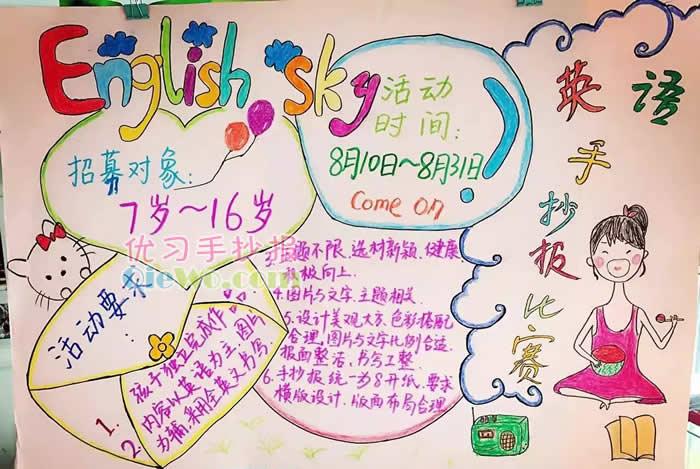 English sky
招募对象:
7岁~16岁
活动
时间:
8月10日~8月31日
Come on!
英语
手抄报比赛
优习手抄报
活动要求
1. 孩子独立完成作
2. 内容以英语为主,图片
书写.
题不限、选材新颖、健康
积极向上.
4.图片与文字、主题相关.
5.设计美观大方、色彩搭配
合理、图片与文字比例合适、
报面整洁、书写工整.
6.手抄报统一为8开纸、要求
横版设计、版面布局合理